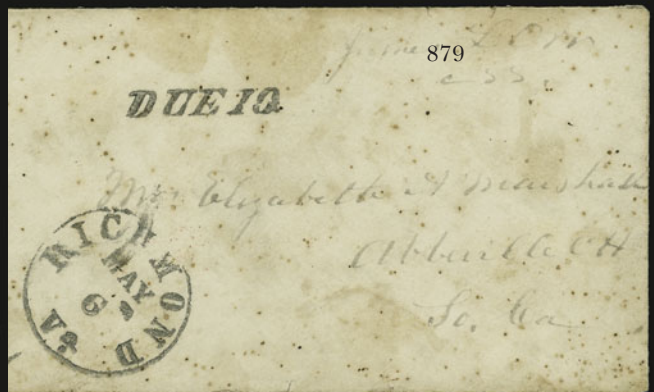 879
DUE 10
Mrs Elizabeth A Marshall
Abbeville C H
So. Ca
RICHMOND Va
MAY